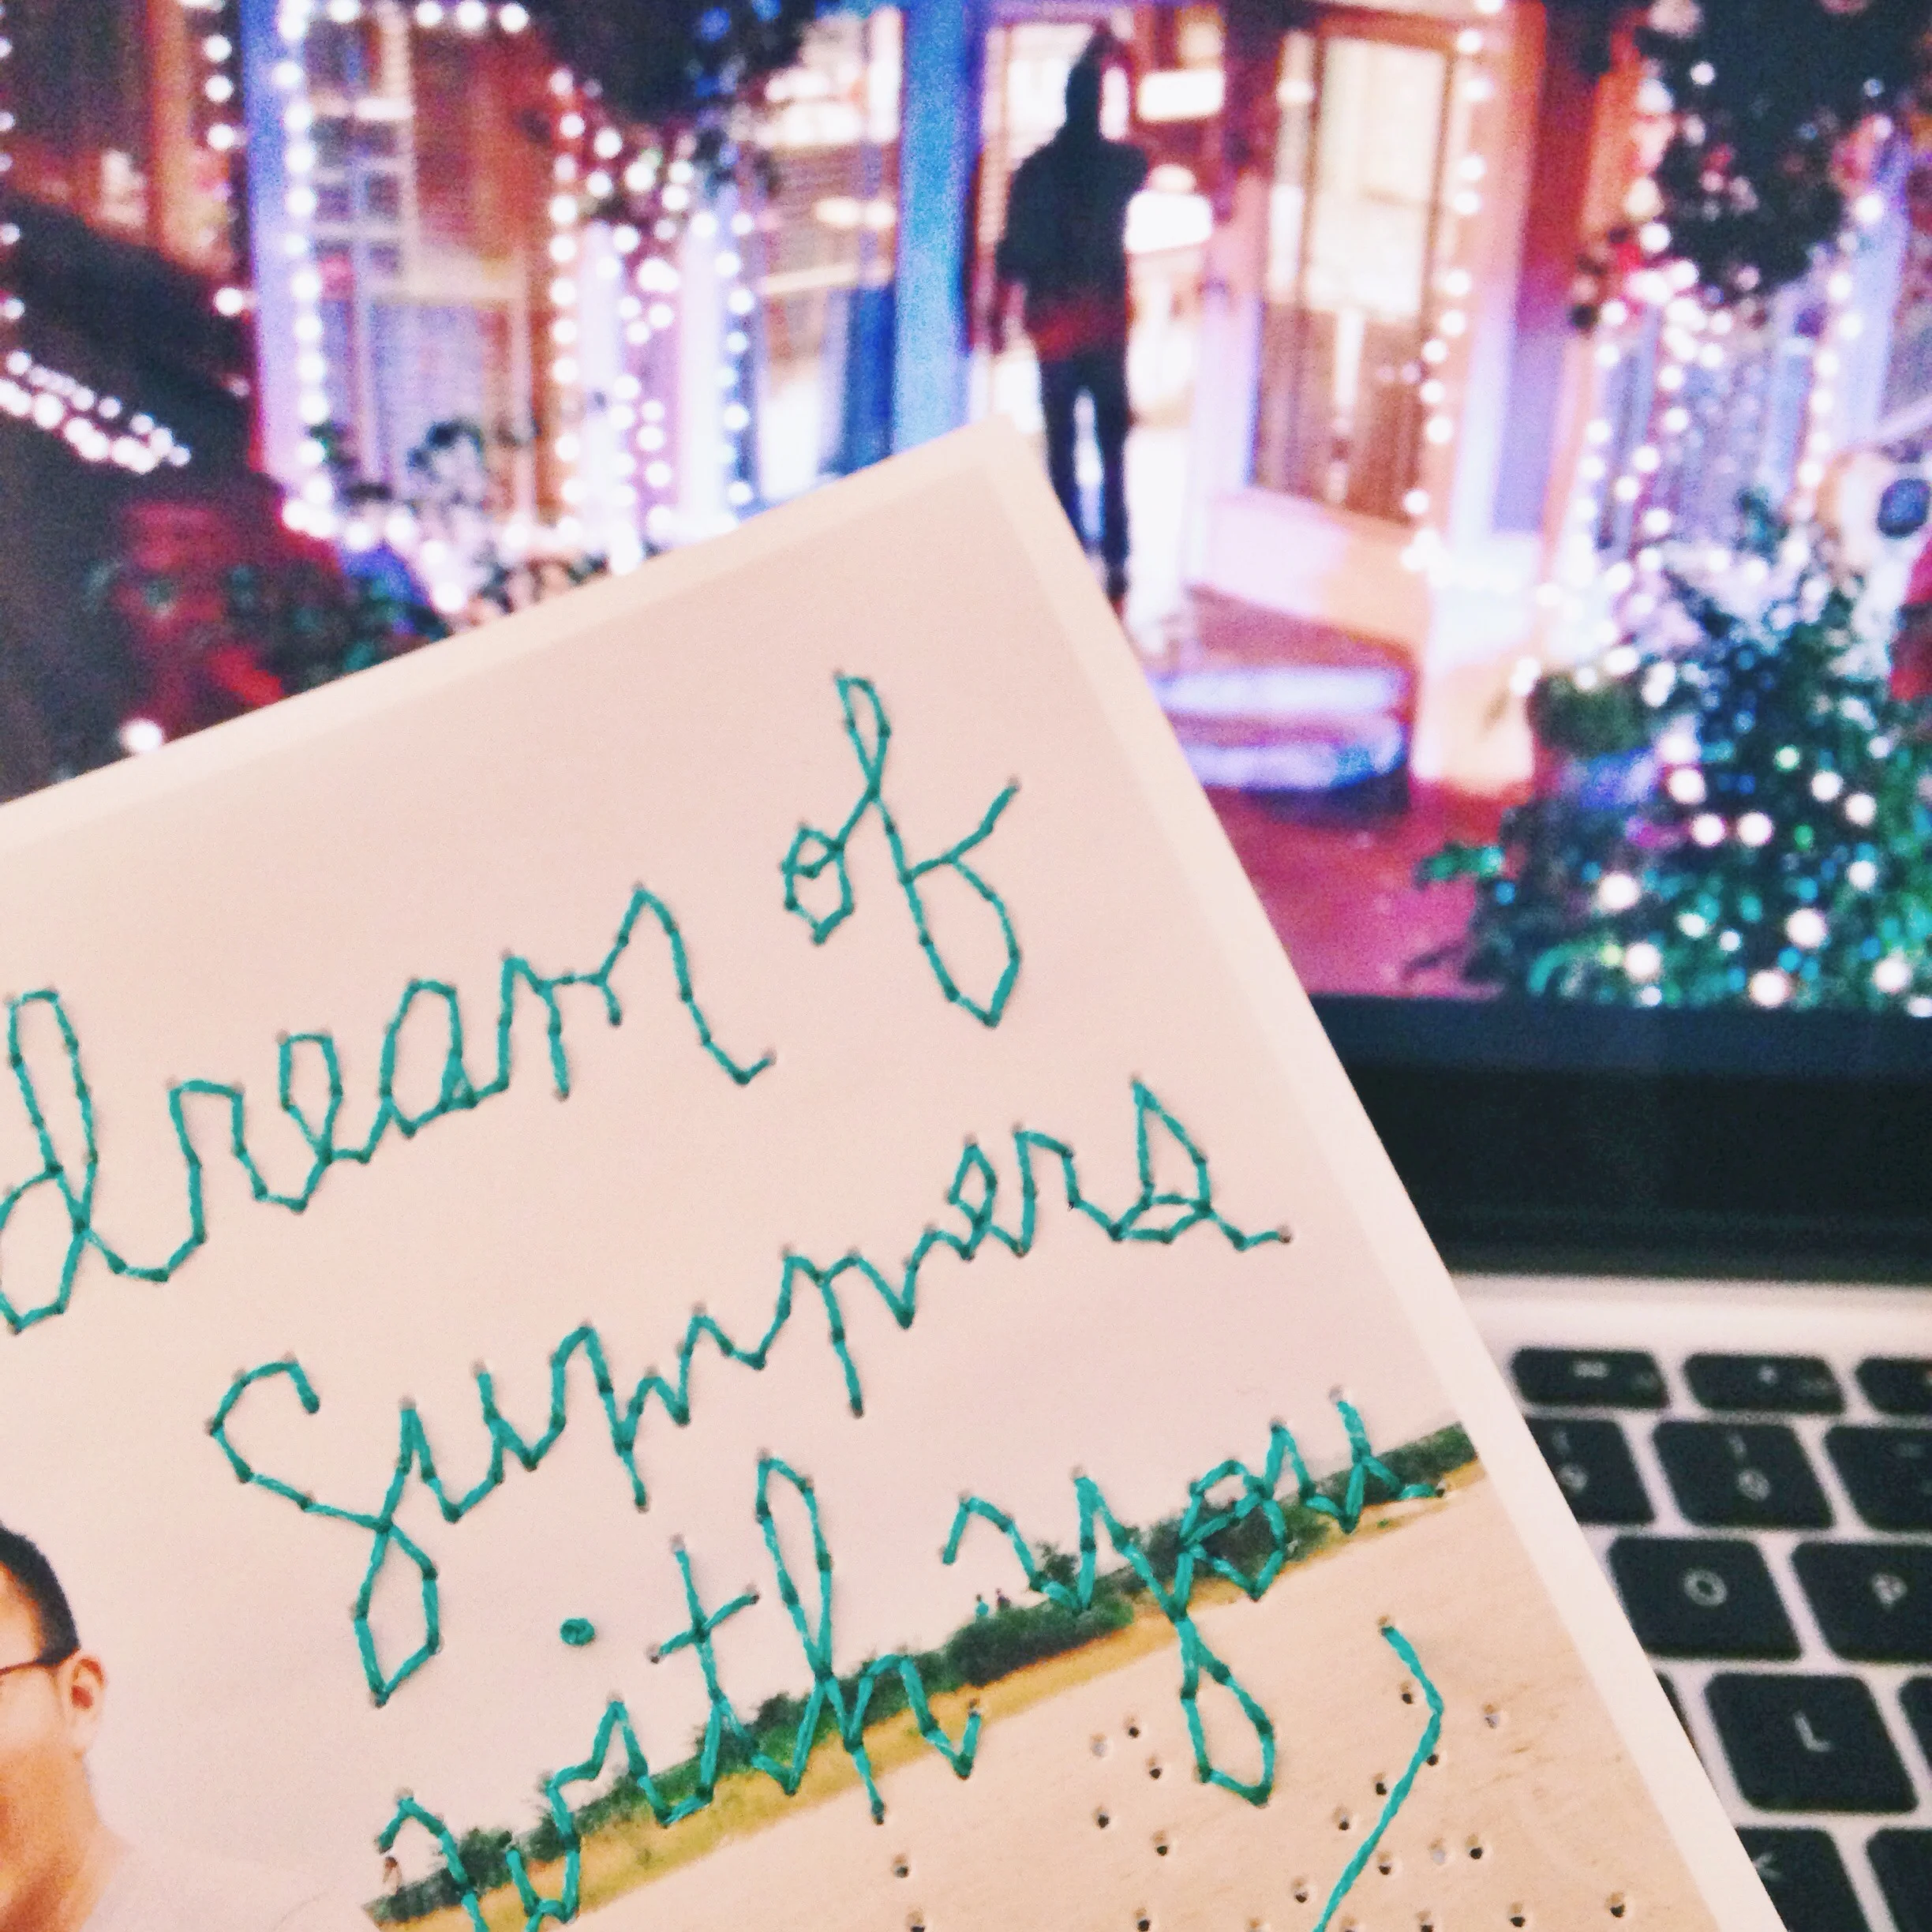 dream of
summers
with you
O
P
L
K